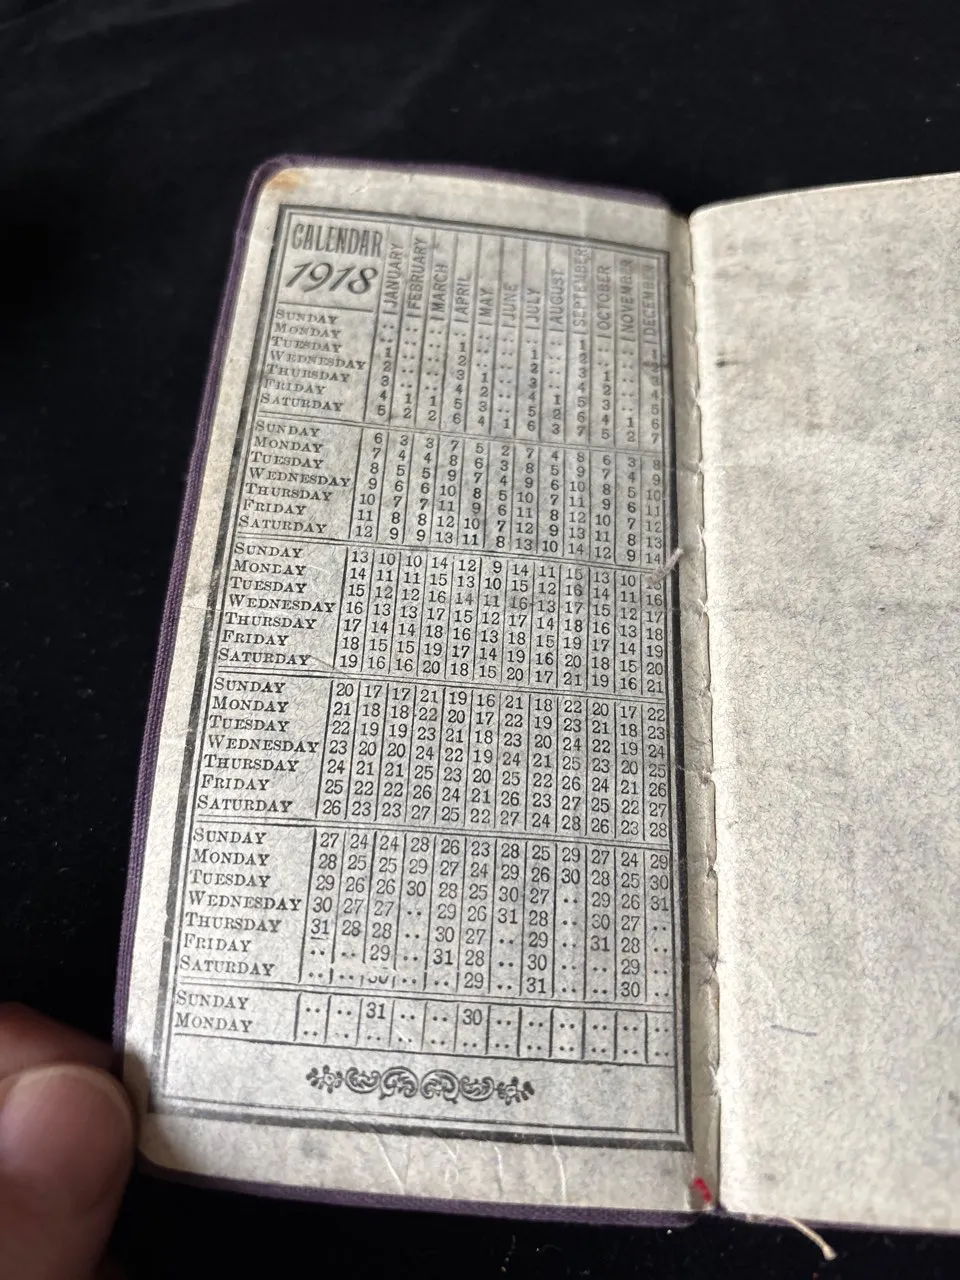 CALENDAR
1918
JANUARY FEBRUARY MARCH APRIL MAY JUNE JULY AUGUST SEPTEMBER OCTOBER NOVEMBER DECEMBER
SUNDAY .. .. .. .. .. .. .. .. 1 .. .. 1
MONDAY .. .. .. 1 .. .. 1 .. 2 .. .. 2
TUESDAY 1 .. .. 2 .. .. 2 .. 3 1 .. 3
WEDNESDAY 2 .. .. 3 1 .. 3 .. 4 2 .. 4
THURSDAY 3 .. .. 4 2 .. 4 1 5 3 .. 5
FRIDAY 4 1 1 5 3 .. 5 2 6 4 1 6
SATURDAY 5 2 2 6 4 1 6 3 7 5 2 7
SUNDAY 6 3 3 7 5 2 7 4 8 6 3 8
MONDAY 7 4 4 8 6 3 8 5 9 7 4 9
TUESDAY 8 5 5 9 7 4 9 6 10 8 5 10
WEDNESDAY 9 6 6 10 8 5 10 7 11 9 6 11
THURSDAY 10 7 7 11 9 6 11 8 12 10 7 12
FRIDAY 11 8 8 12 10 7 12 9 13 11 8 13
SATURDAY 12 9 9 13 11 8 13 10 14 12 9 14
SUNDAY 13 10 10 14 12 9 14 11 15 13 10 15
MONDAY 14 11 11 15 13 10 15 12 16 14 11 16
TUESDAY 15 12 12 16 14 11 16 13 17 15 12 17
WEDNESDAY 16 13 13 17 15 12 17 14 18 16 13 18
THURSDAY 17 14 14 18 16 13 18 15 19 17 14 19
FRIDAY 18 15 15 19 17 14 19 16 20 18 15 20
SATURDAY 19 16 16 20 18 15 20 17 21 19 16 21
SUNDAY 20 17 17 21 19 16 21 18 22 20 17 22
MONDAY 21 18 18 22 20 17 22 19 23 21 18 23
TUESDAY 22 19 19 23 21 18 23 20 24 22 19 24
WEDNESDAY 23 20 20 24 22 19 24 21 25 23 20 25
THURSDAY 24 21 21 25 23 20 25 22 26 24 21 26
FRIDAY 25 22 22 26 24 21 26 23 27 25 22 27
SATURDAY 26 23 23 27 25 22 27 24 28 26 23 28
SUNDAY 27 24 24 28 26 23 28 25 29 27 24 29
MONDAY 28 25 25 29 27 24 29 26 30 28 25 30
TUESDAY 29 26 26 30 28 25 30 27 .. 29 26 31
WEDNESDAY 30 27 27 .. 29 26 31 28 .. 30 27 ..
THURSDAY 31 28 28 .. 30 27 .. 29 .. 31 28 ..
FRIDAY .. .. 29 .. 31 28 .. 30 .. .. 29 ..
SATURDAY .. .. 30 .. .. 29 .. 31 .. .. 30 ..
SUNDAY .. .. 31 .. .. 30 .. .. .. .. .. ..
MONDAY .. .. .. .. .. .. .. .. .. .. .. ..